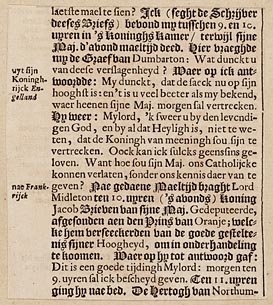 laetste mael te sien? Ick (seght de Schrijver
deeses Briefs) bevond my tusschen 9. en 10.
uyren in 's Koninghs Kamer / terwijl sijne
Maj. d'avond maeltijd deed. Hier vraeghde
my de Graef van Dumbarton: Wat dunckt u
uyt sijn van deese verslagenheyd? Waer op ick ant-
Koningh- woordde: My dunckt, dat de saeck nu op sijn
rijck En- hooghst is: en't is u veel beeter als my bekend,
gelland waer heenen sijne Maj. morgen sal vertrecken.
Hy weer: Mylord, 'k sweer u by den levendi-
gen God, en by al dat Heyligh is, niet te we-
ten, dat de Koningh van meeningh sou sijn te
vertrecken. Oock kan ick sulcks geensins ge-
loven. Want hoe sou sijn Maj. ons Catholijcke
konnen verlaten, sonder ons kennis daer van te
nae Frank- geven? Nae gedaene Maeltijd braght Lord
rijck Midleton ten 10. uyren ('s avonds) Koning
Jacob Brieven van sijne Maj. Gedeputeerde,
afgesonden aen den Prins van Oranje; wel-
cke hem verseeckerden van de goede gestelte-
nis sijner Hoogheyd, om in onderhandeling
te koomen. Waer op hy tot antwoord gaf:
Dit is een goede tijdingh Mylord: morgen ten
9. uyren sal ick bescheyd geven. Ten 11. uyren
ging hy nae bed. De Hertogh van Northum-